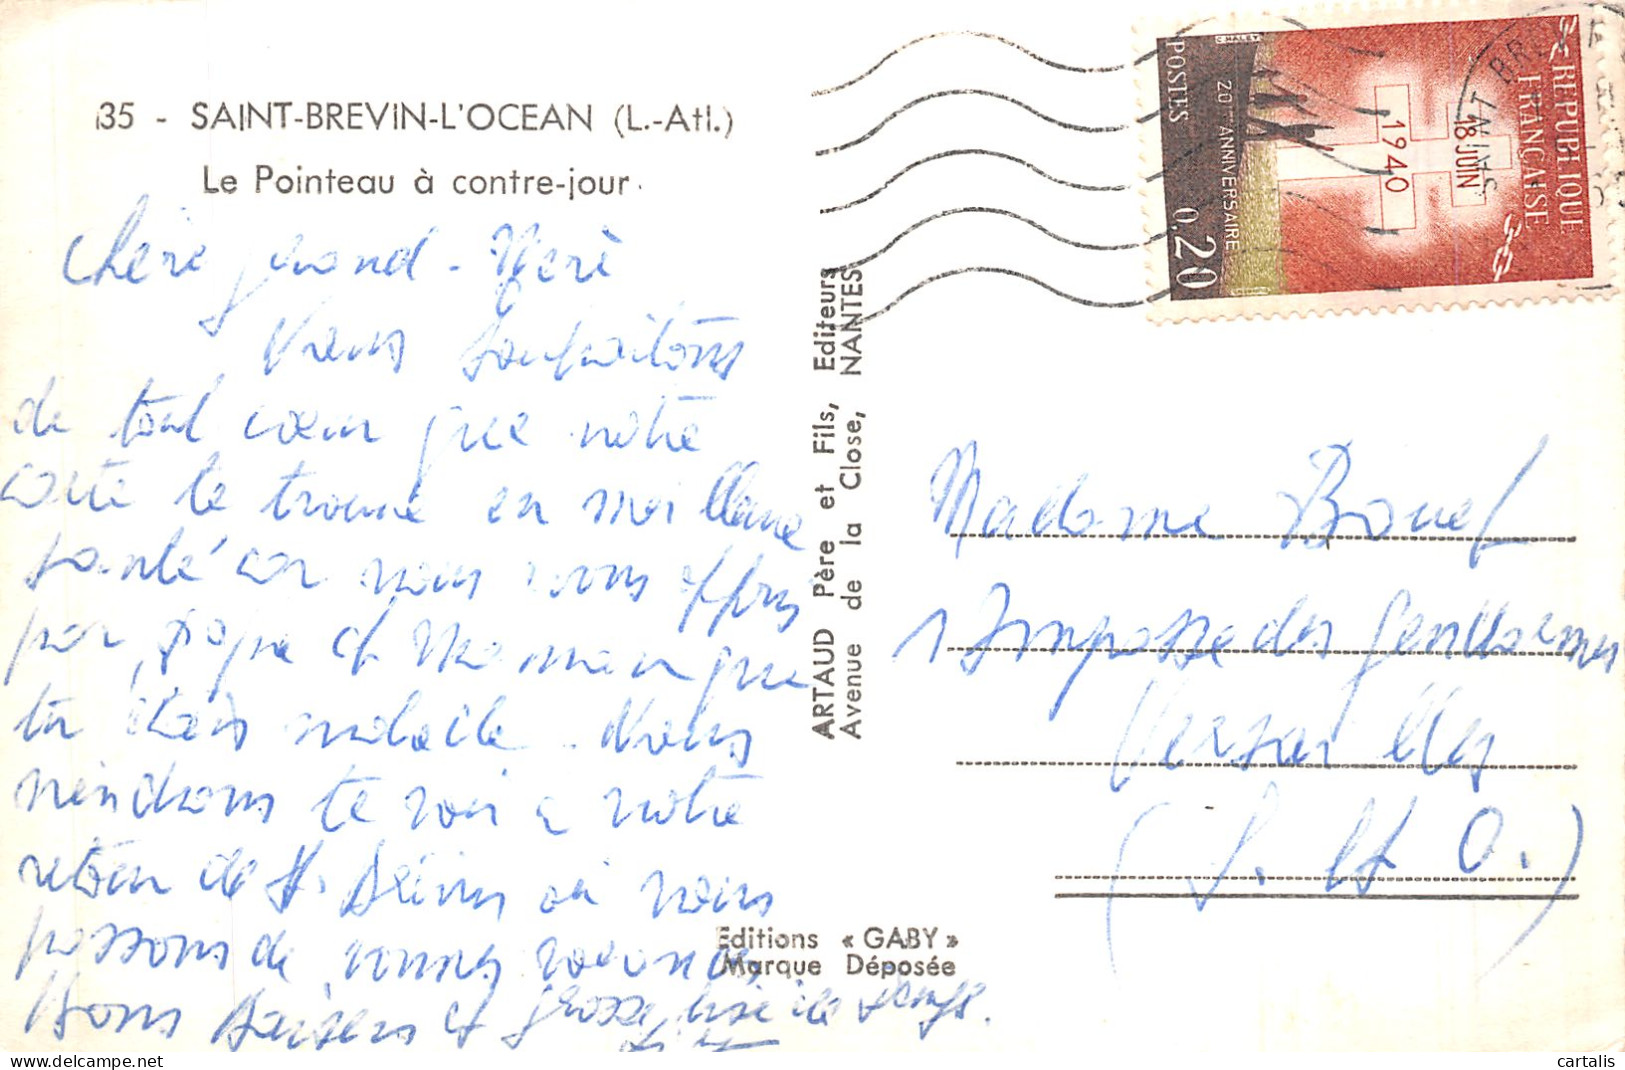 35 - SAINT-BREVIN-L'OCEAN (L.-Atl.)
Le Pointeau à contre-jour.
Chère grand-Merè
Nous souhaitons
de tout coeur que notre
carte te trouve en meilleure
santé car nous avons appris
par papa et Maman que
tu étais malade. Nous
viendrons te voir à notre
retour de St. Brévin où nous
passons de bonnes vacances
Bons Baisers et grosses bises
ARTAUD Père et Fils, Editeurs
Avenue de la Close, NANTES
Editions « GABY »
Marque Déposée
C. HALEY
POSTES
20me ANNIVERSAIRE
0,20
1940
18 JUIN
REPUBLIQUE
FRANÇAISE
SAINT BREVIN
Madame Bouet
1 Impasse des Gendarmes
Versailles
(S. et O.)
cartalis